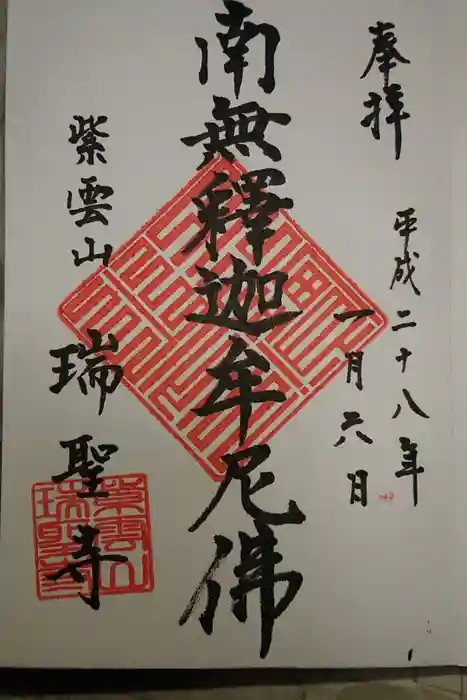 奉拝
平成二十八年
一月六日
南無釋迦牟尼佛
紫雲山
瑞聖寺
紫雲山
瑞聖寺